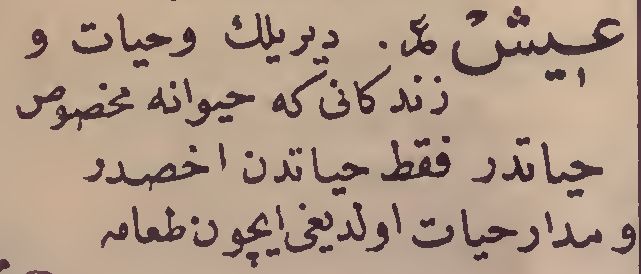 عيش . ديريلك وحيات و
زندكانى كه حيوانه مخصوص
حياتدر فقط حياتدن اخصدر
و مدار حيات اولديغى ايچون طعامه